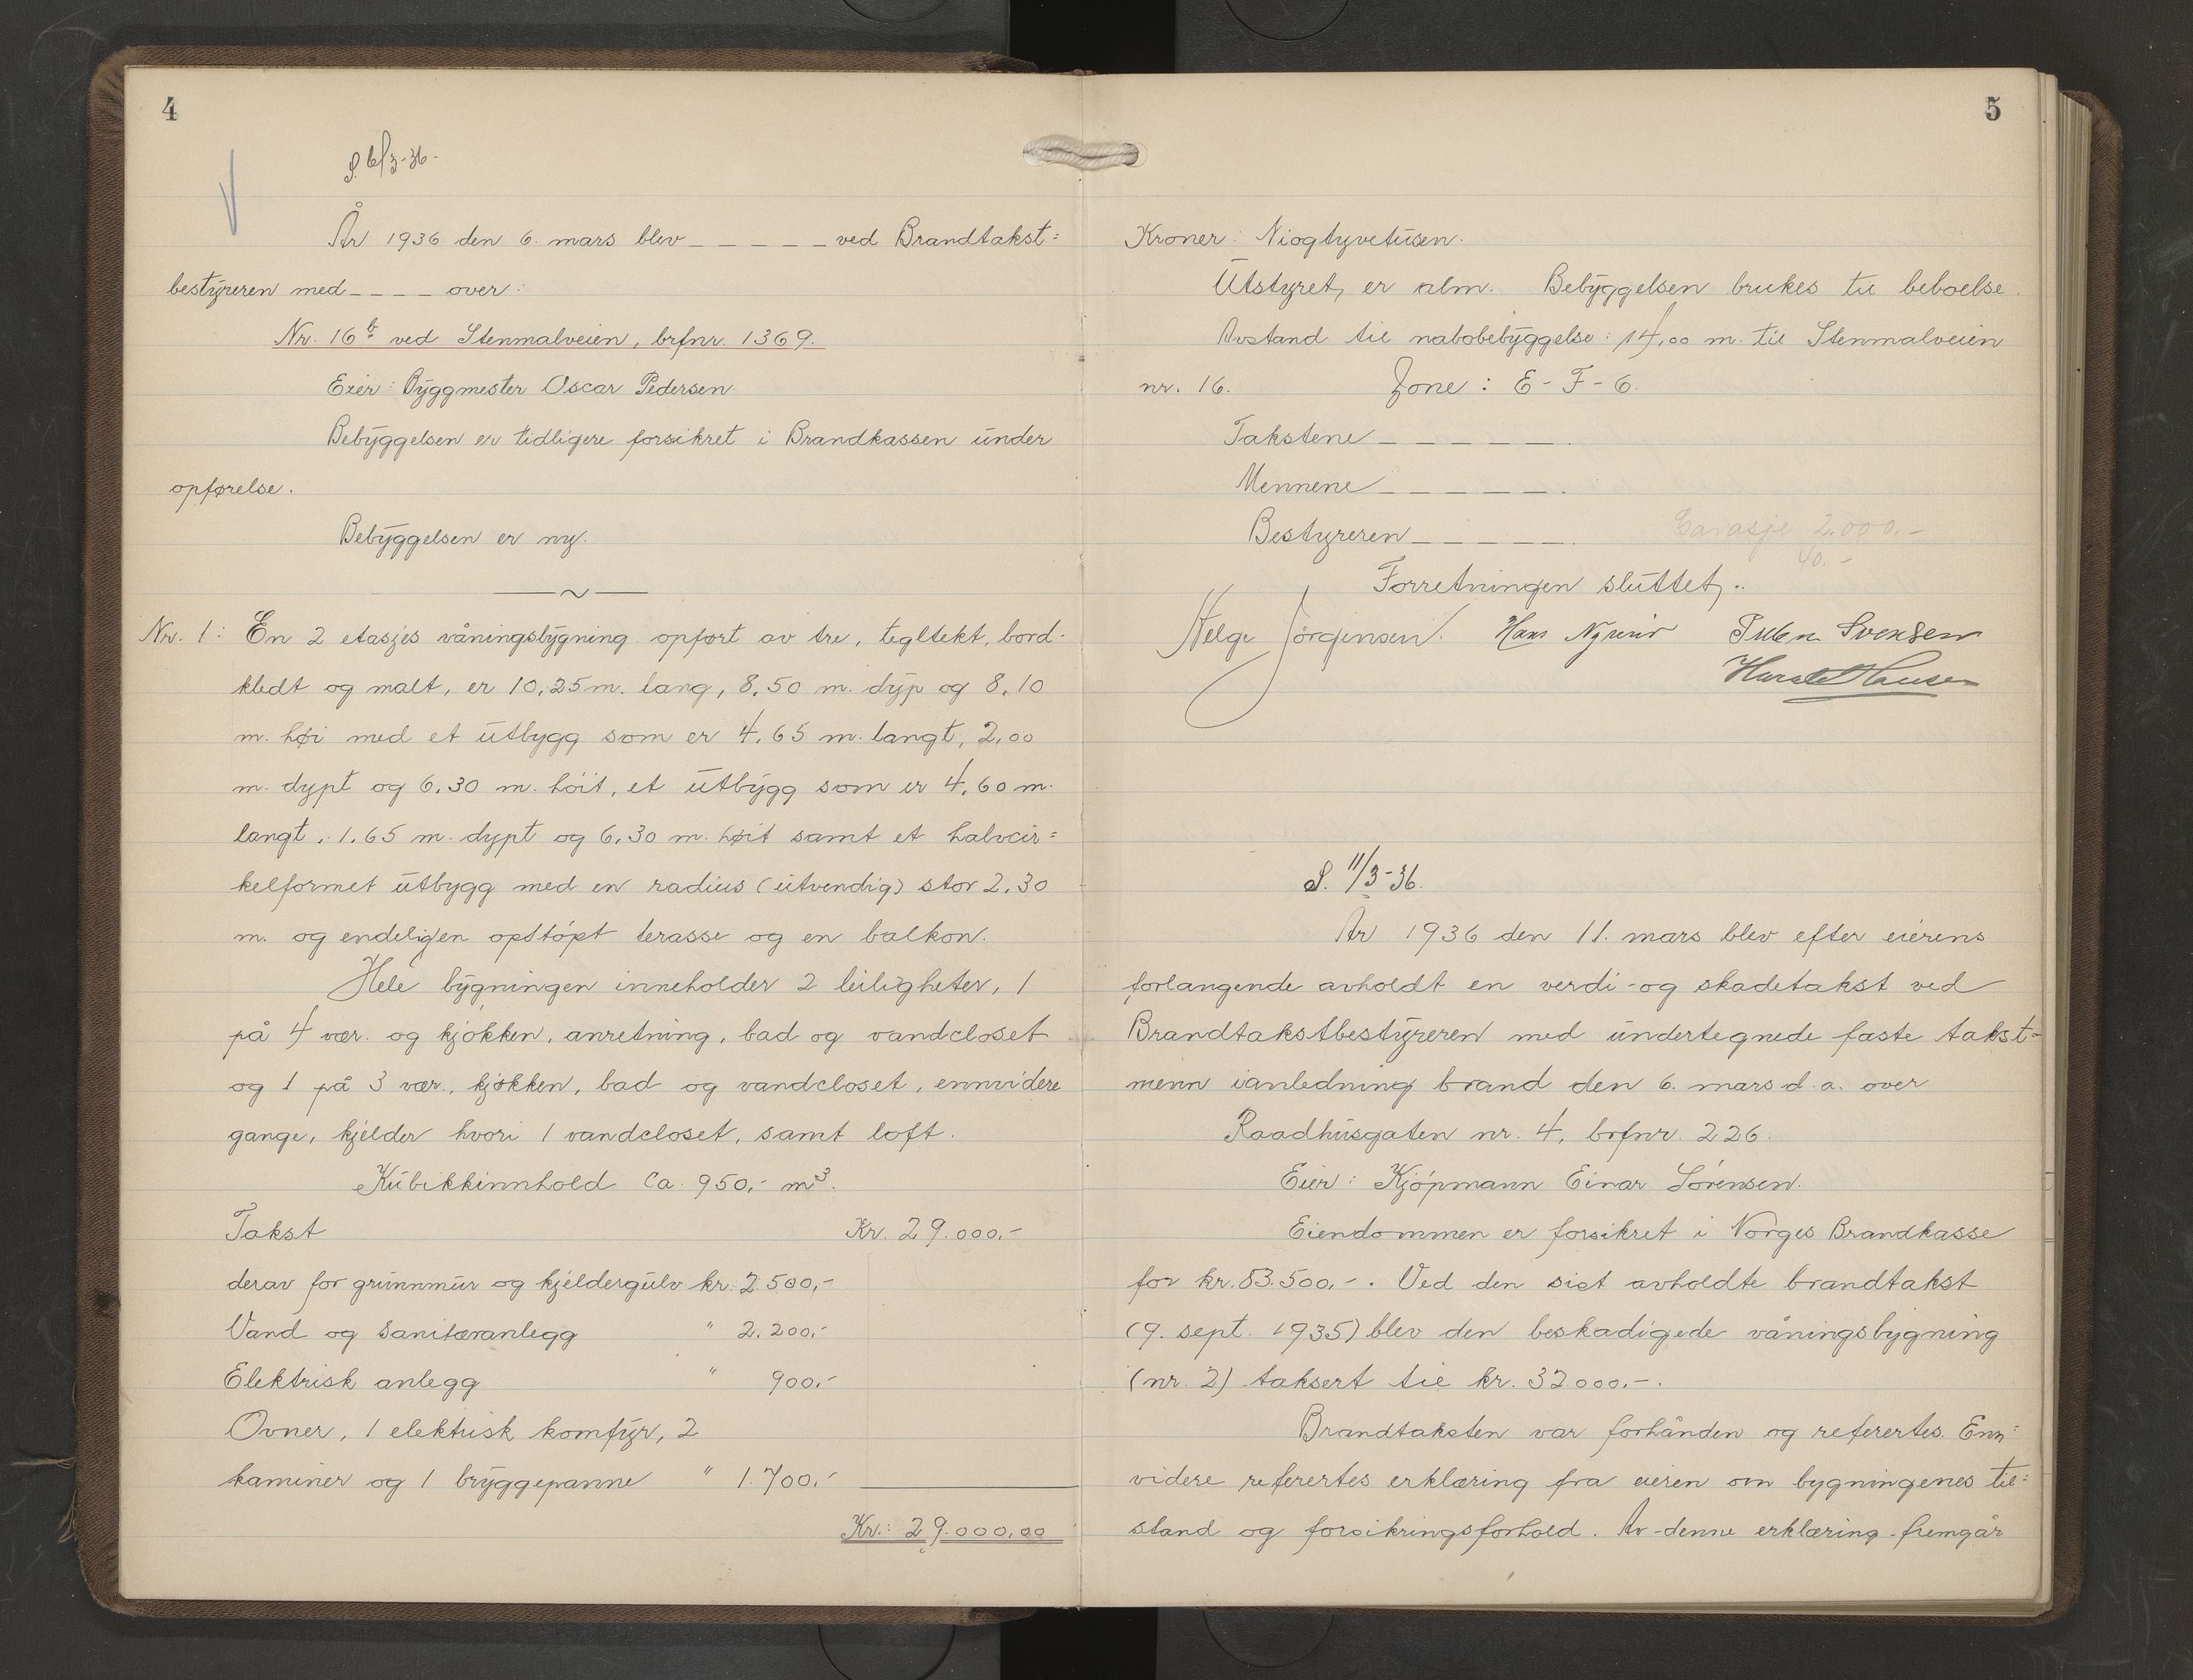 4
S. 6/3-36.
År 1936 den 6. mars blev _ _ _ _ _ ved Brandtakst=
bestyreren med _ _ _ _ over:
Nr. 16b ved Stenmalveien, brfnr. 1369.
Eier: Byggmester Oscar Pedersen.
Bebyggelsen er tidligere forsikret i Brandkassen under
opførelse.
Bebyggelsen er ny.
Nr. 1: En 2 etasjes våningsbygning opført av tre, tegltekt, bord-
kledt og malt, er 10,25 m. lang, 8,50 m. dyp og 8,10
m. høi med et utbygg som er 4,65 m. langt, 2,00
m. dypt og 6,30 m. höit, et utbygg som er 4,60 m.
langt, 1,65 m. dypt og 6,30 m. høit samt et halvcir=
kelformet utbygg med en radius (utvendig) stor 2,30
m. og endeligen opstöpt terasse og en balkon.
Hele bygningen inneholder 2 leiligheter, 1
på 4 vær. og kjökken, anretning, bad og vandcloset
og 1 på 3 vær., kjøkken, bad og vandcloset, ennvidere
gange, kjelder hvori 1 vandcloset, samt loft.
Kubikkinnhold ca. 950,- m³.
Takst Kr. 29.000,-
derav for grunnmur og kjeldergulv kr. 2.500,-
Vand og sanitæranlegg " 2.200,-
Elektrisk anlegg " 900,-
Ovner, 1 elektrisk komfyr, 2
kaminer og 1 bryggepanne " 1.700,-
Kr.: 29.000,00
5
Kroner: Niogtyvetusen.
Utstyret er alm. Bebyggelsen brukes til beboelse.
Avstand til nabobebyggelse: 14,00 m. til Stenmalveien
nr. 16. Zone: E-F-6.
Takstene _ _ _ _ _.
Mennene _ _ _ _ _.
Bestyreren _ _ _ _ _.
Garasje 2.000.-
40.-
Forretningen sluttet.
Helge Jörgensen. Hans Svensen
Harald Hansen
S. 11/3-36.
År 1936 den 11. mars blev efter eierens
forlangende avholdt en verdi- og skadetakst ved
Brandtakstbestyreren med undertegnede faste takst-
menn ianledning brand den 6. mars d.a. over
Raadhusgaten nr. 4, brfnr. 226.
Eier: Kjöpmann Einar Sörensen.
Eiendommen er forsikret i Norges Brandkasse
for kr. 53.500,-. Ved den sist avholdte brandtakst
(9. sept. 1935) blev den beskadigede våningsbygning
(nr. 2) taksert til kr. 32.000,-.
Brandtaksten var forhånden og refererter. Enn=
videre refererter erklæring fra eieren om bygningenes til=
stand og forsikringsforhold. Av denne erklæring fremgår